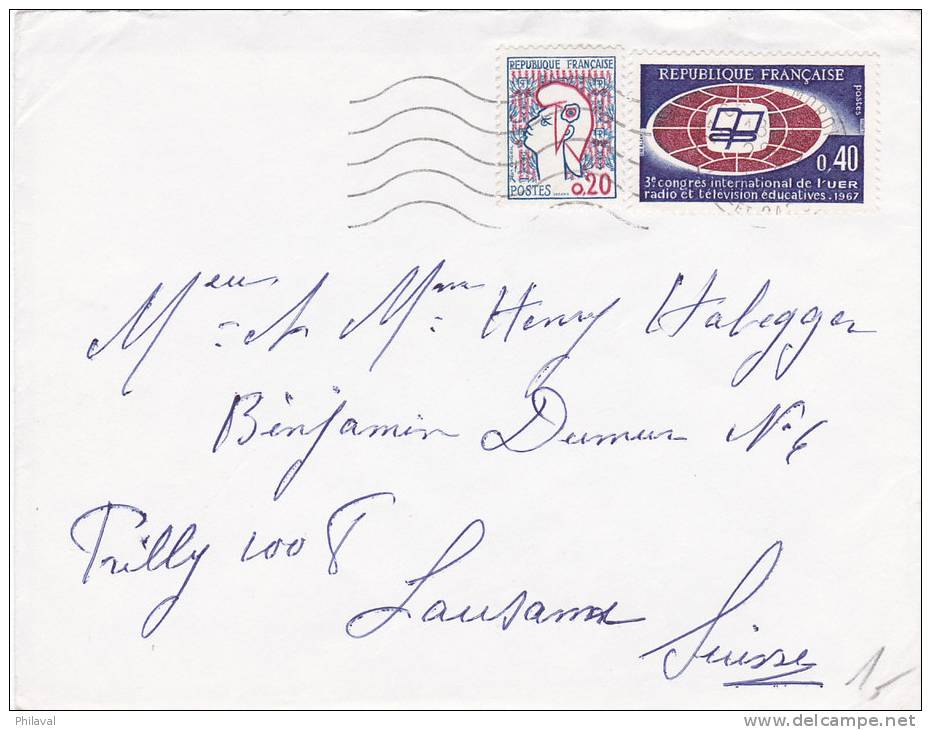 REPUBLIQUE FRANÇAISE
POSTES 0,20
REPUBLIQUE FRANÇAISE
postes
0,40
3e congrès international de l'UER
radio et télévision éducatives - 1967
Meur et Mme Henry Habegger
Bénjamin Dumur No 6
Prilly 1008
Lausanne
Suisse
Philaval
www.delcampe.net